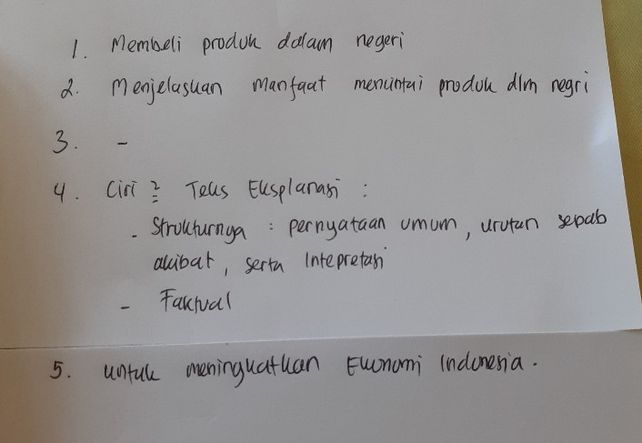 1. Membeli produk dalam negeri
2. Menjelaskan manfaat mencintai produk dlm negri
3. -
4. Ciri 2 Teks Eksplanasi :
- Strukturnya : pernyataan umum, urutan sebab
akibat, serta Intepretasi
- Faktual
5. untuk meningkatkan Ekonomi Indonesia.